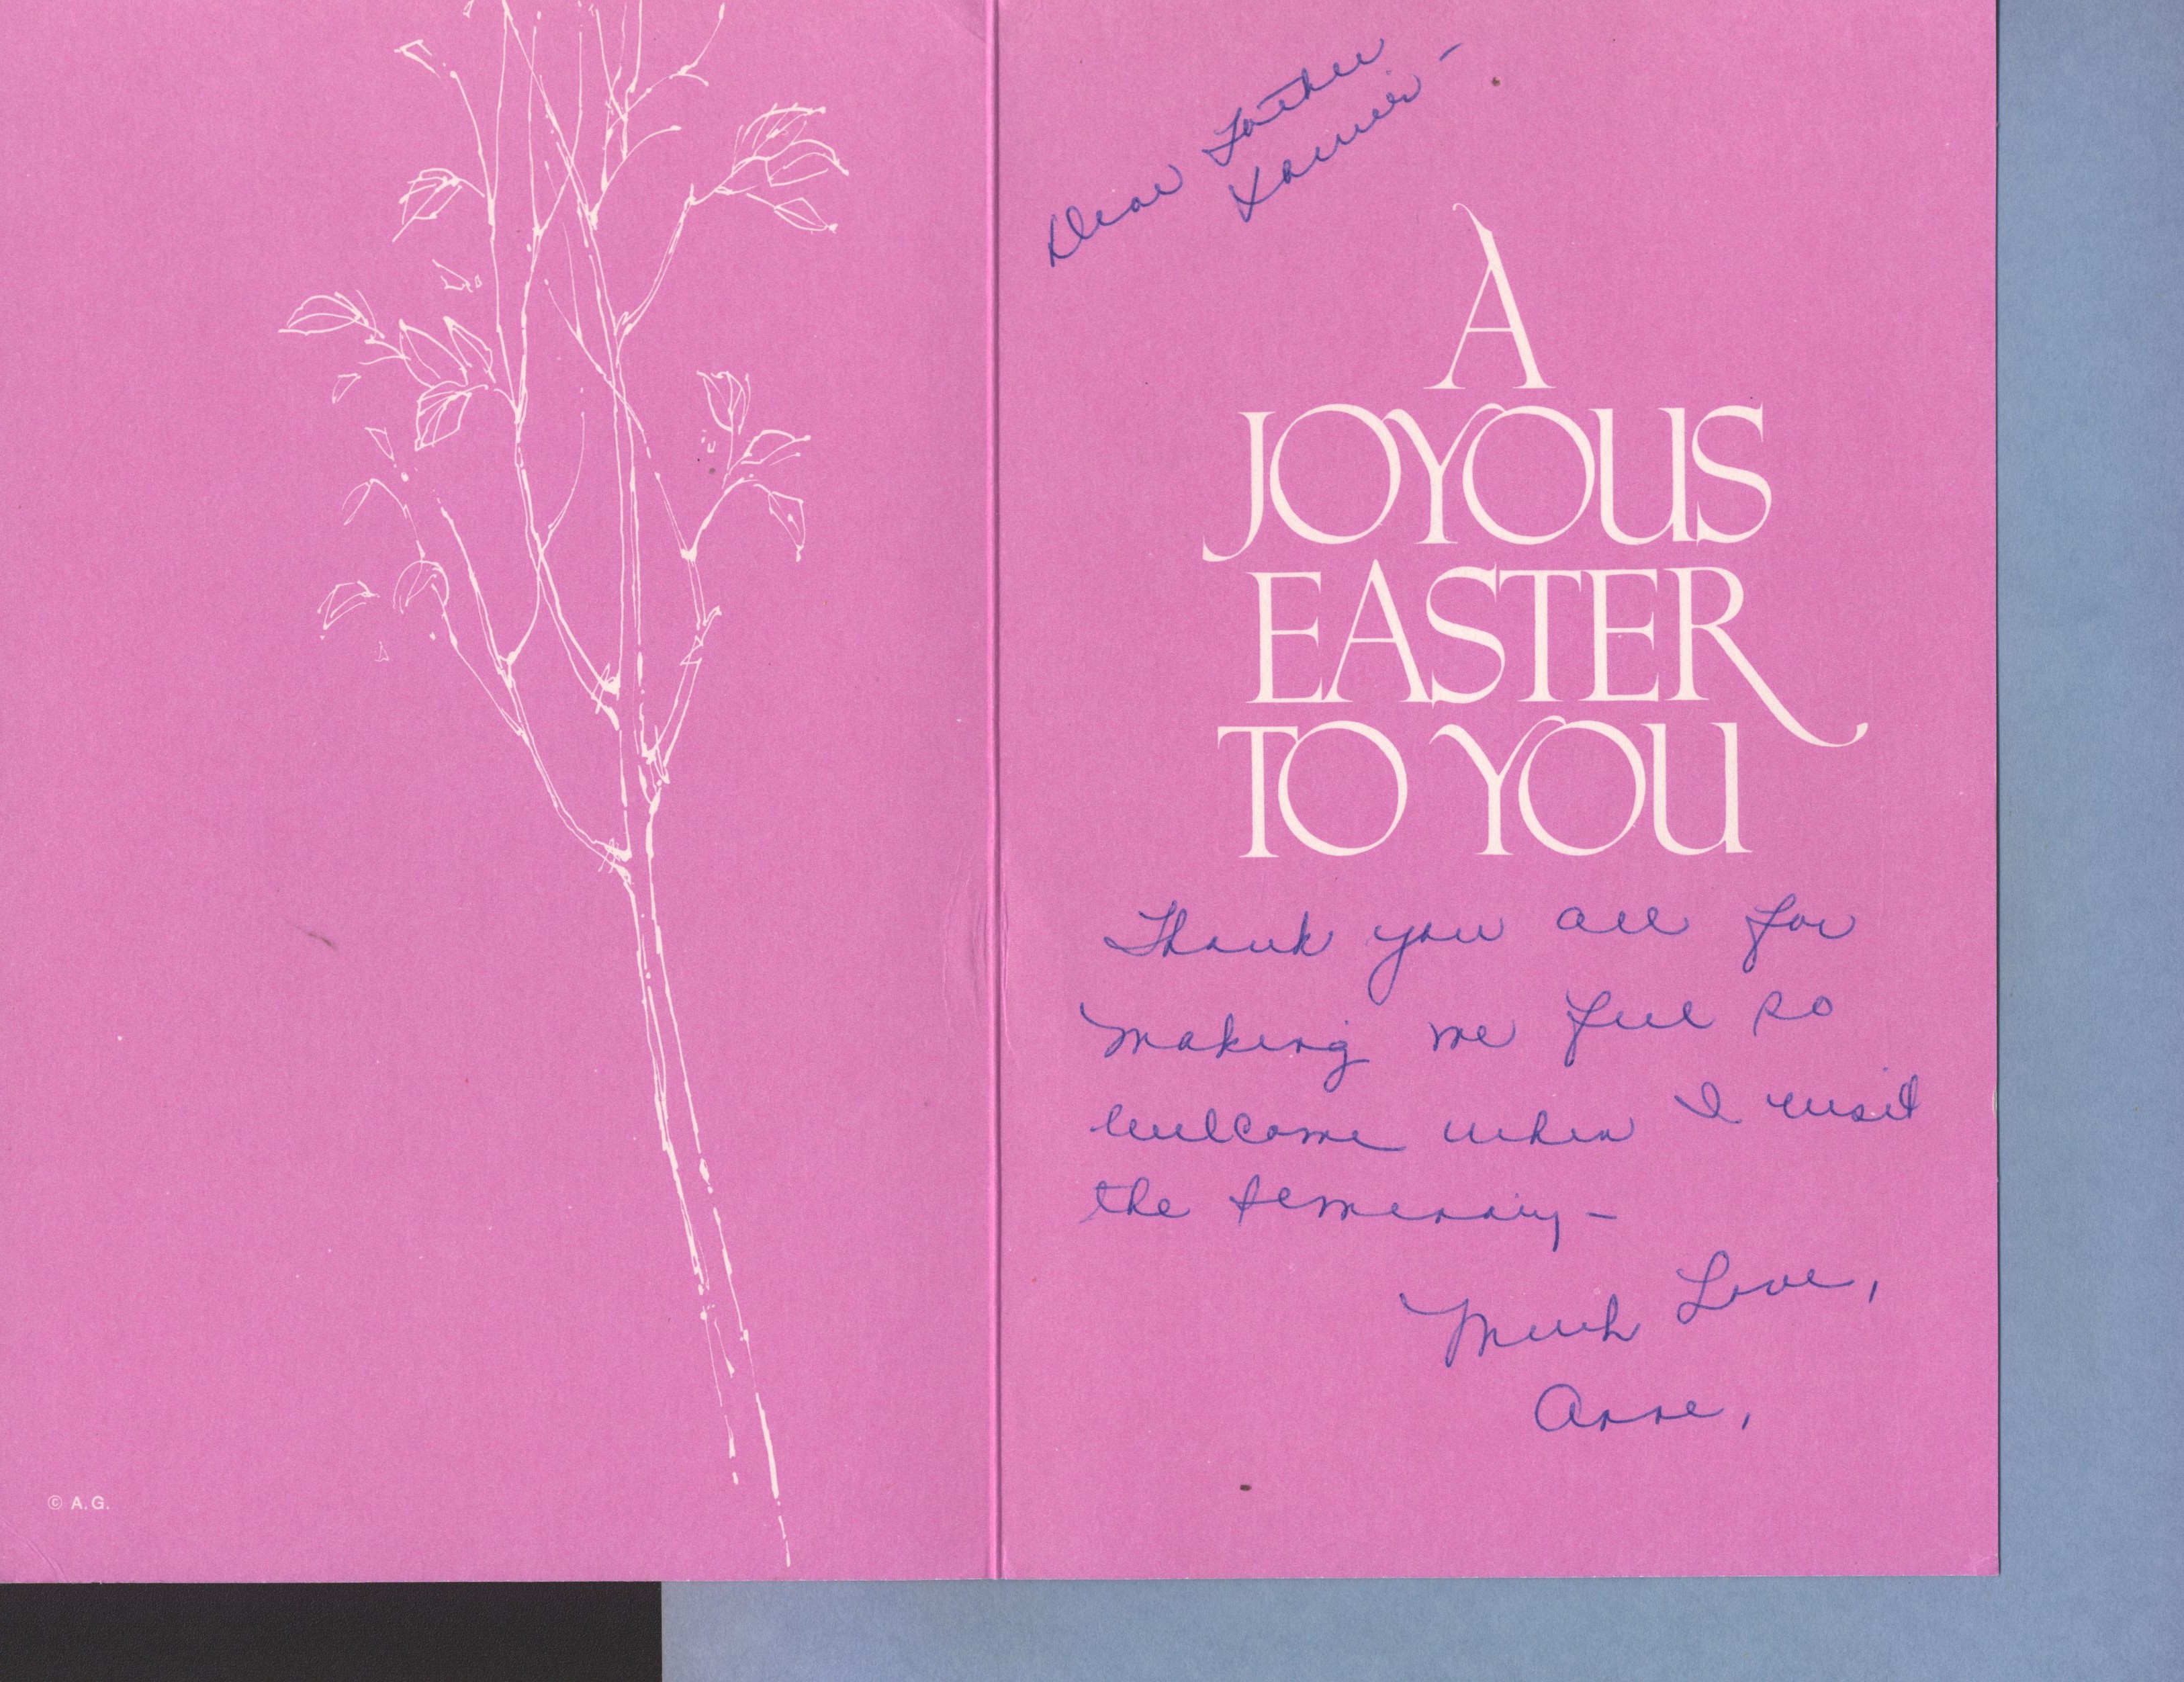 Dear Father
Xavier -
A
JOYOUS
EASTER
TO YOU
Thank you all for
making me feel so
welcome when I visit
the seminary -
Much Love,
Anne,
© A.G.